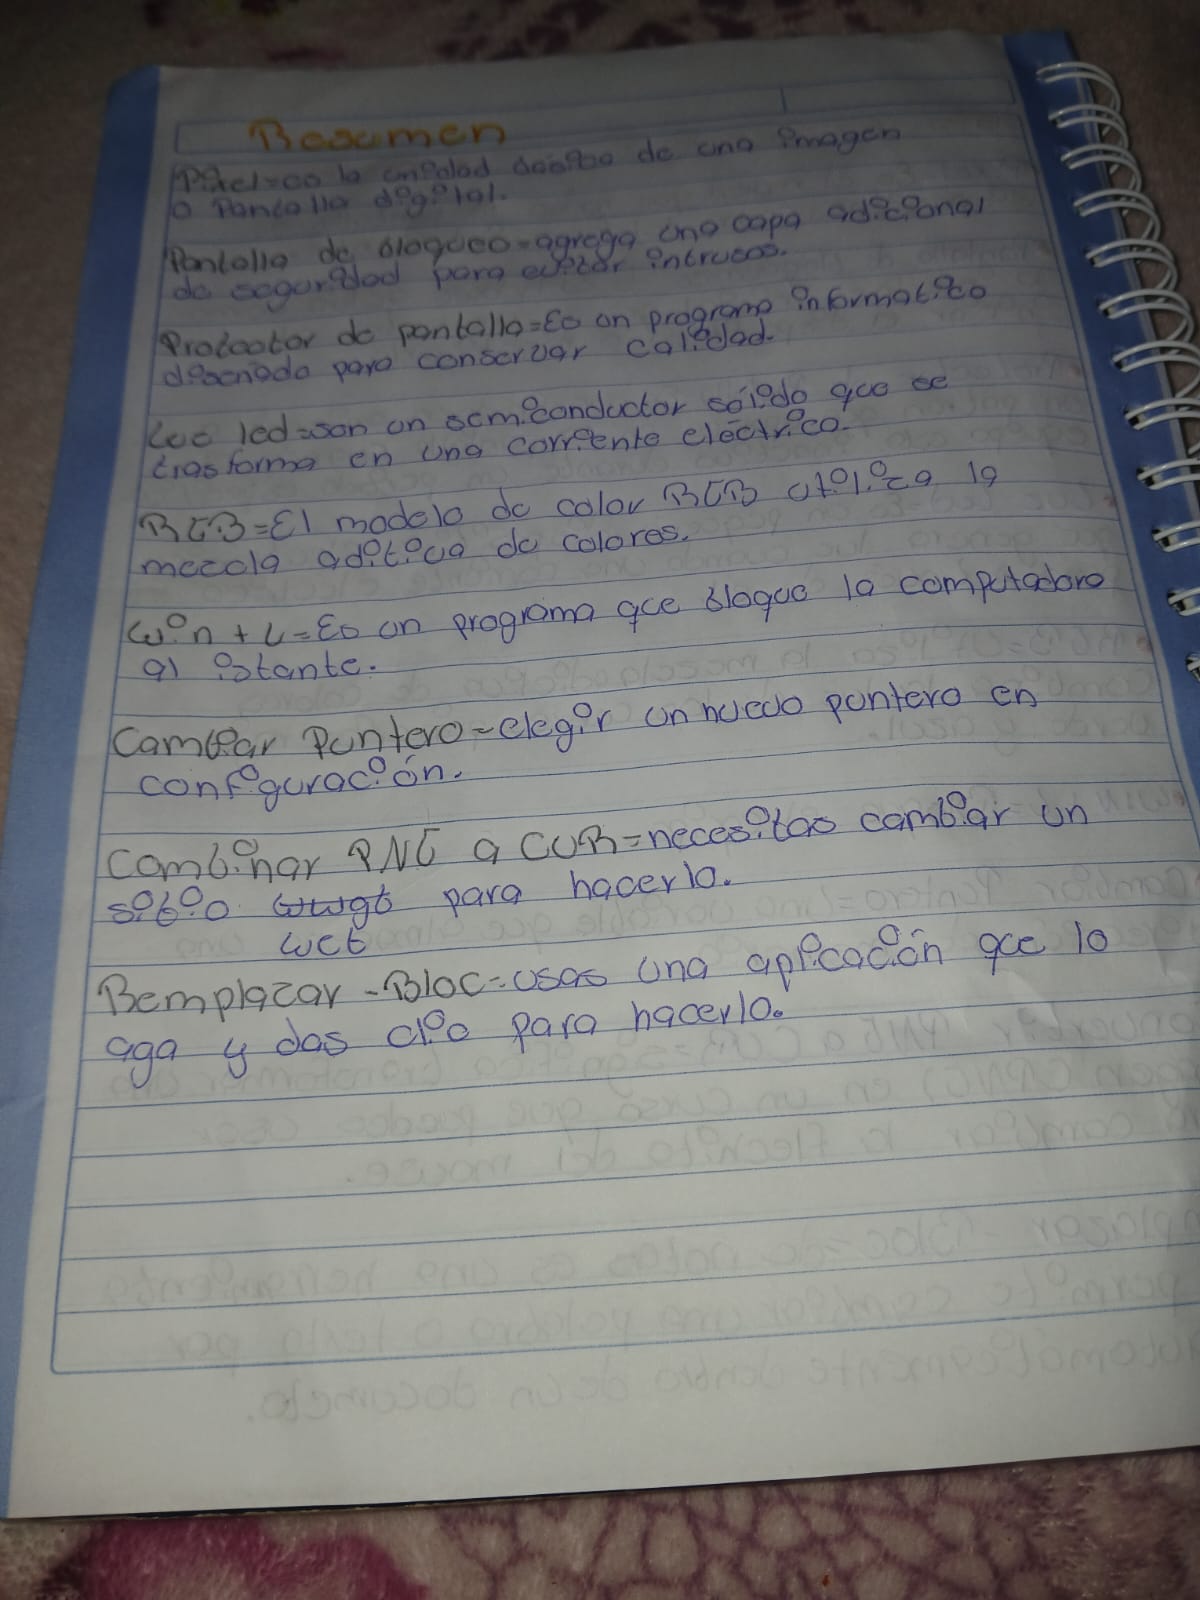 Resumen
Pixel=es la unidad básica de una imagen
o Pantalla digital.
Pantalla de bloqueo=agrega una capa adicional
de seguridad para evitar intrusos.
Protector de pantalla=Es un programa informatico
diseñado para conservar calidad.
Luc led=son un semiconductor sólido que se
trasforma en una corriente eléctrico.
RGB=El modelo de color RGB utiliza la
mezcla aditiva de colores.
Win + L=Es un programa que bloque la computadora
al istante.
Cambiar Puntero=elegir un nuevo puntero en
configuración.
Combinar PNG a CUR=necesitas cambiar un
sitio para hacerlo.
web
Remplazar -Bloc=usas una aplicación que lo
aga y das clic para hacerlo.